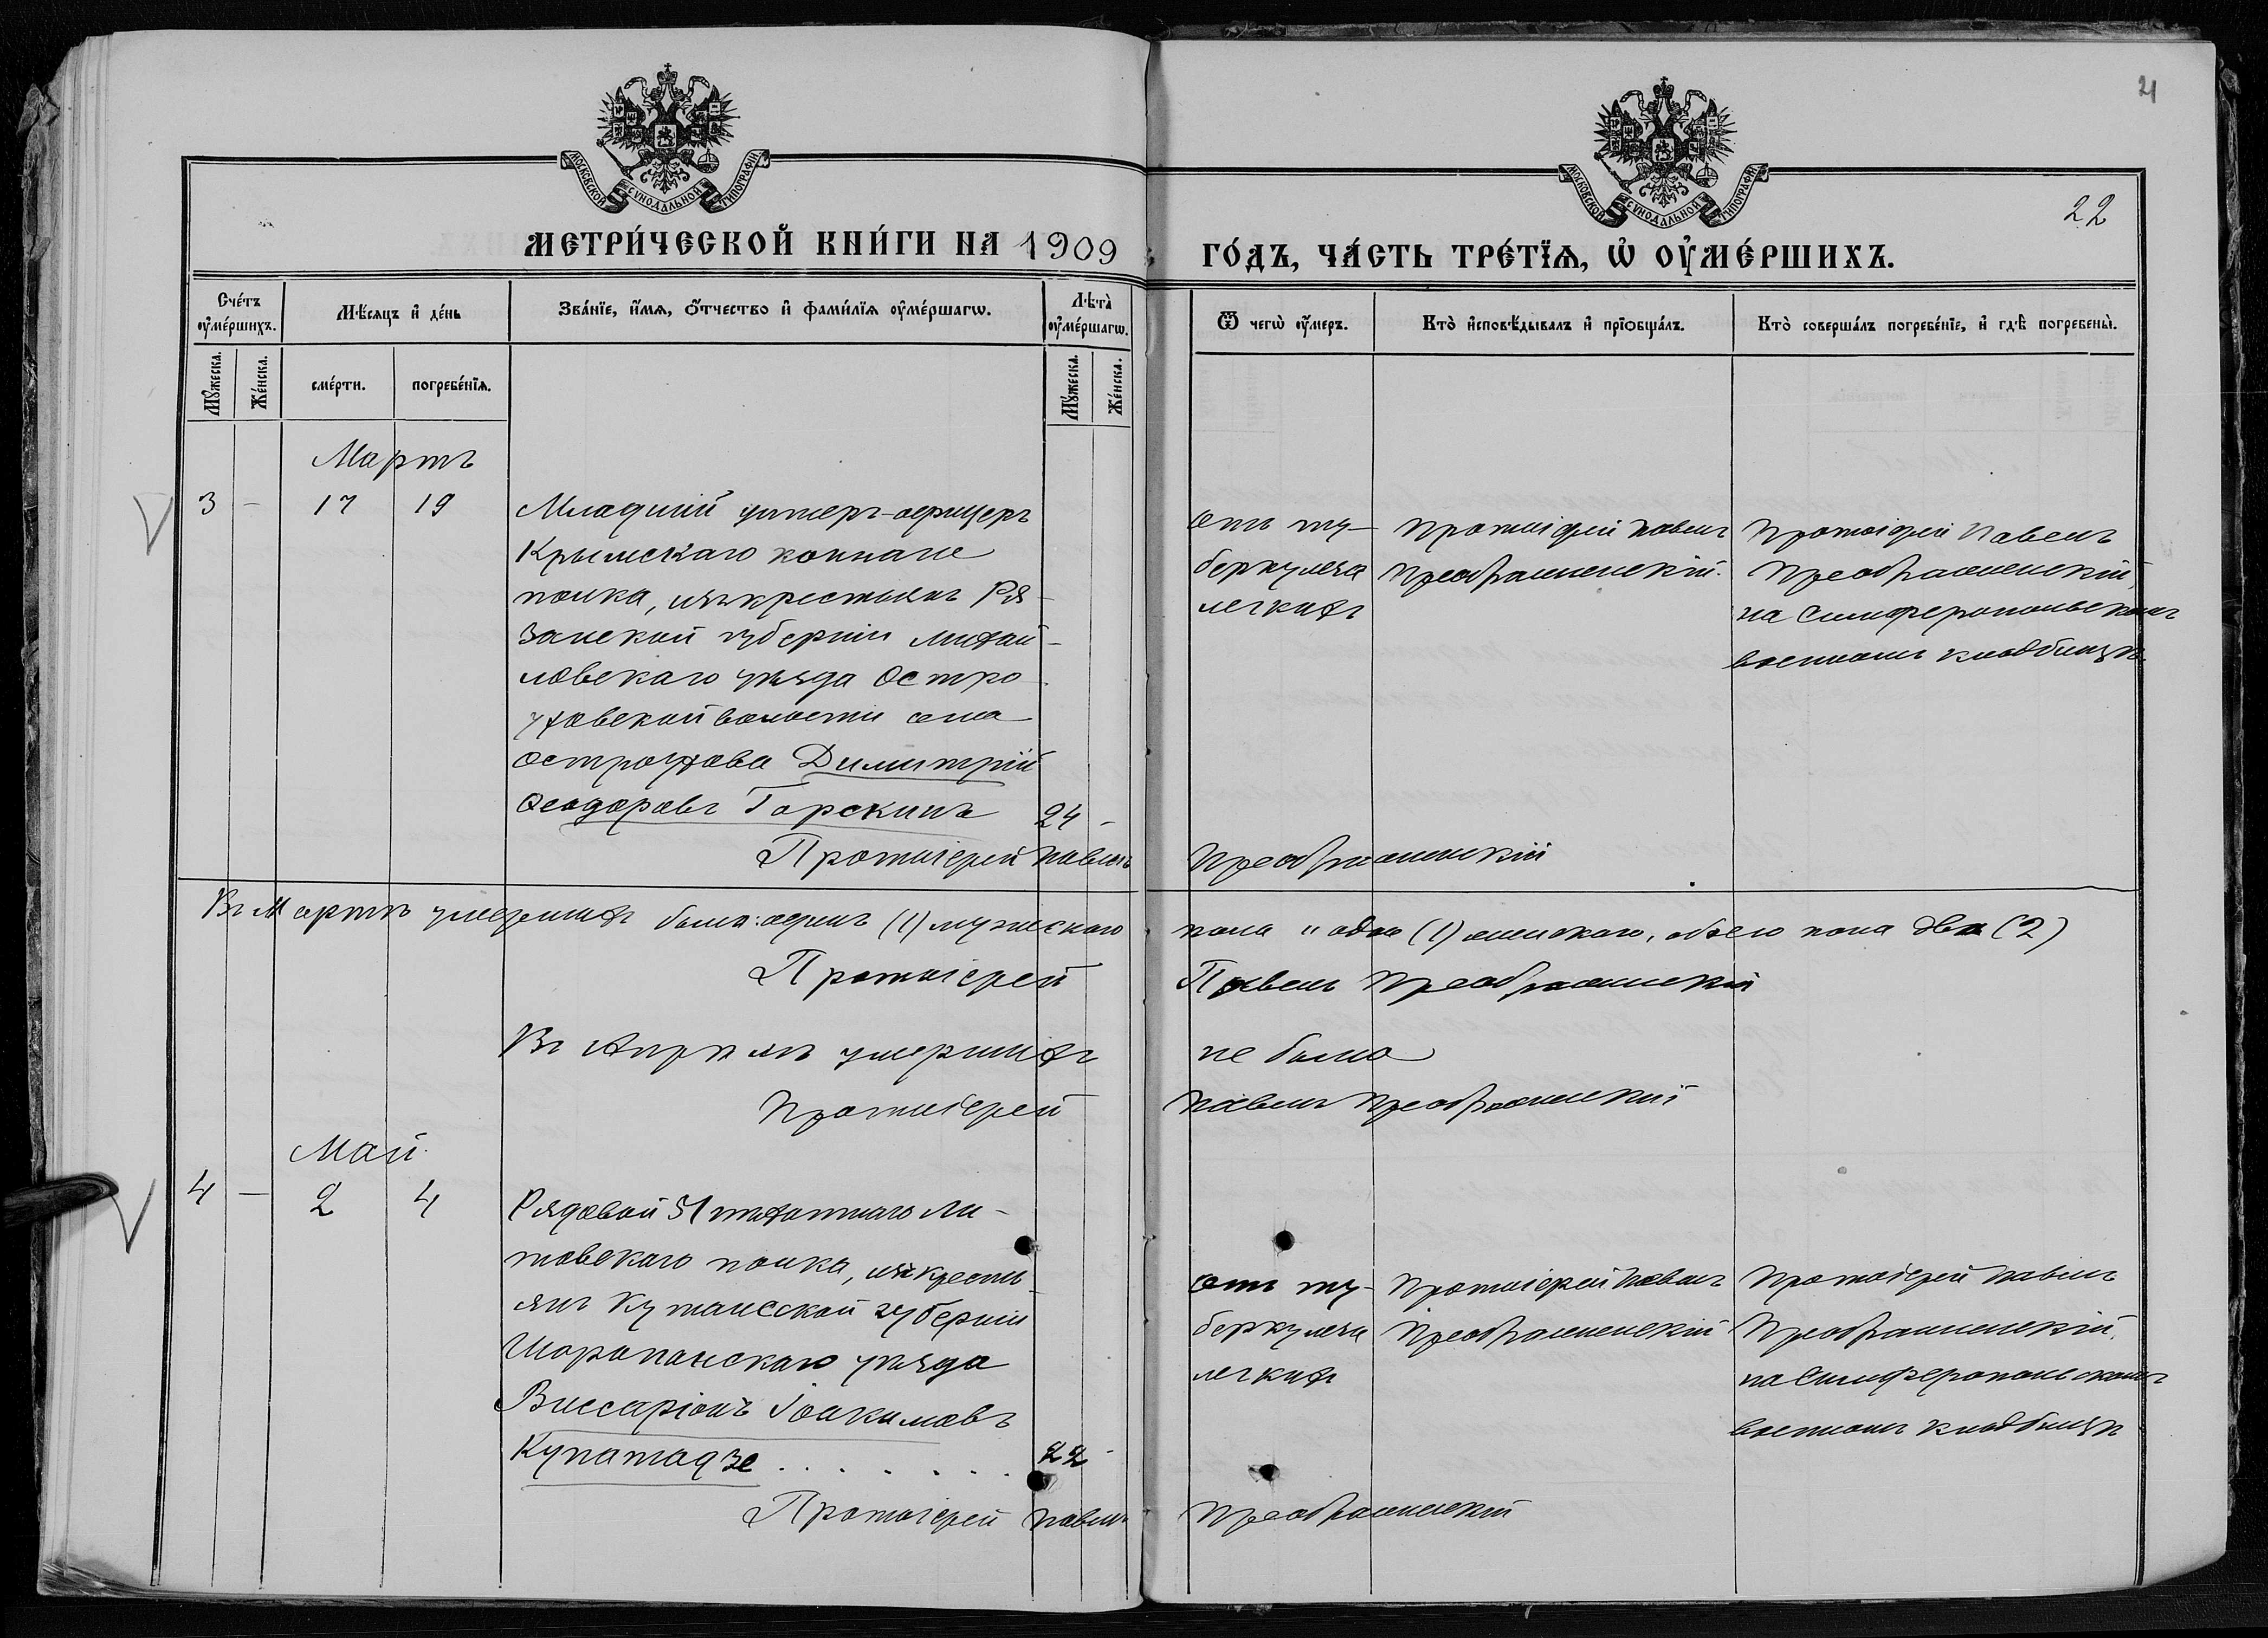 21
22
МОСКОВСКОЙ СѴНОДАЛЬНОЙ ТИПОГРАФІИ
МОСКОВСКОЙ СѴНОДАЛЬНОЙ ТИПОГРАФІИ
МЕТРИ́ЧЕСКОЙ КНИ́ГИ НА 1909 ГО́ДЪ, ЧА́СТЬ ТРЕ́ТІѦ, Ѡ҆ ОУ҆МЕ́РШИХЪ.
Сче́тъ оу҆ме́ршихъ.
Мѣ́сяцъ и҆ де́нь
Зва́нїе, и҆́мѧ, ѻ҆́тчество и҆ фами́лїѧ оу҆ме́ршагѡ.
Лѣта̀ оу҆ме́ршагѡ.
Ѿ чегѡ̀ оу҆́меръ.
Кто̀ и҆сповѣ́дывалъ и҆ прїѡбща́лъ.
Кто̀ соверша́лъ погребе́нїе, и҆ гдѣ̀ погребены̀.
Мꙋ́жеска.
Же́нска.
сме́рти.
погребе́нїѧ.
Мꙋ́жеска.
Же́нска.
Мартъ
3 - 17 19
Младшій унтеръ-офицеръ
Крымскаго коннаго
полка, изъ крестьянъ Ря-
занской губерніи Михай-
ловскаго уѣзда Остро-
уховской волости села
Остроухова Димитрій
Ѳеодоровъ Горскинъ 24 -
отъ ту-
беркулеза
легкихъ
Протоіерей Павелъ
Преображенскій.
Протоіерей Павелъ
Преображенскій,
на Симферопольскомъ
военномъ кладбищѣ.
Протоіерей Павелъ Преображенскій
Въ Мартѣ умершихъ было: одинъ (1) мужескаго пола и одна (1) женскаго, обоего пола два (2)
Протоіерей Павелъ Преображенскій
Въ Апрѣлѣ умершихъ не было
Протоіерей Павелъ Преображенскій
Май.
4 - 2 4
Рядовой 51 пѣхотнаго Ли-
товскаго полка, изъ кресть-
янъ Кутаисской губерніи
Шоропанскаго уѣзда
Виссаріонъ Іоакимовъ
Купатадзе . . . . . . . 22 -
отъ ту-
беркулеза
легкихъ
Протоіерей Павелъ
Преображенскій
Протоіерей Павелъ
Преображенскій,
на Симферопольскомъ
военномъ кладбищѣ
Протоіерей Павелъ Преображенскій